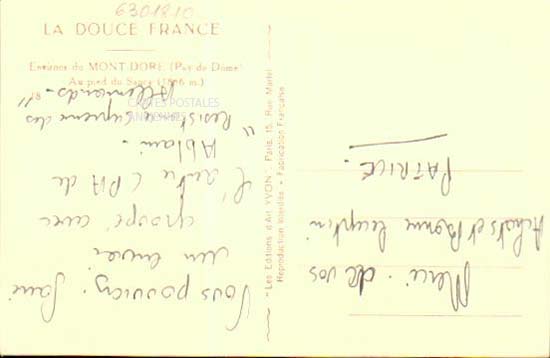 6301810
LA DOUCE FRANCE
Environs du MONT-DORE (Puy-de-Dôme)
Au pied du Sancy (1886 m.)
18
CARTES POSTALES
ANCIENNES
"Les Editions d'Art YVON", Paris, 15, Rue Martel
Reproduction Interdite • Fabrication Française
Merci. de vos
Achats et Bonne
PATRICE.
Vous pouvez. faire
un envoi
groupé avec
l'autre CPA de
Ablain.
"Resist Suprême des
Allemands."